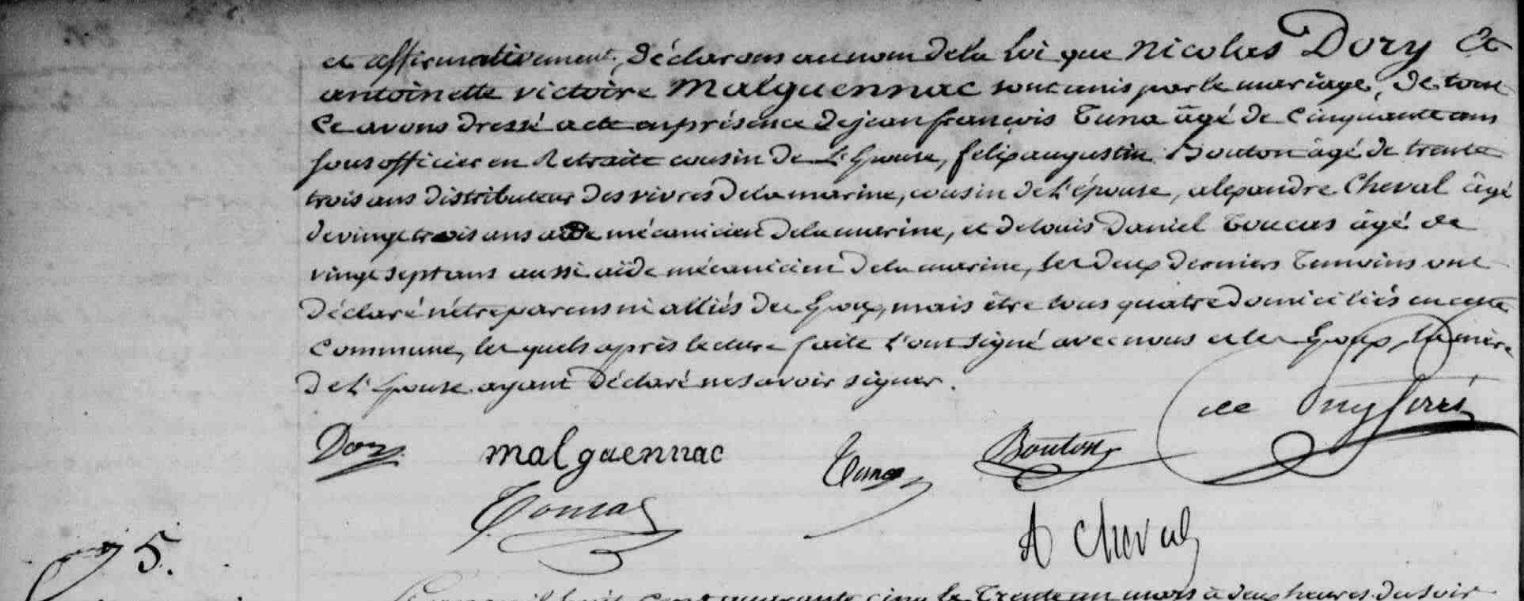 et affirmativement, déclarons au nom de la Loi que Nicolas Dory Et
antoinette victoire Malguennac sont unis par le mariage, De tout
Ce avons Dressé acte en présence de jean françois Tuna âgé de Cinquante ans
sous officier en Retraite cousin de L'Epouse, felix augustin Bouton âgé de trente
trois ans distributeur des vivres de la marine, cousin de l'épouse, alexandre Cheval âgé
de vingt trois ans aide mécanicien de la marine, et de louis Daniel Toucas âgé de
vingt sept ans aussi aide mécanicien de la marine, les deux derniers Temoins ont
Déclaré n'être parens ni alliés des Epoux, mais être tous quatre domiciliés en cette
Commune, les quels après lecture faite l'ont signé avec nous et les Epoux, la mère
de L'Epouse ayant Déclaré ne savoir signer.
Dory malguennac Tuna Bouton
Toucas A Cheval
95.
cent quarante cinq le Trente un mars à deux heures du soir